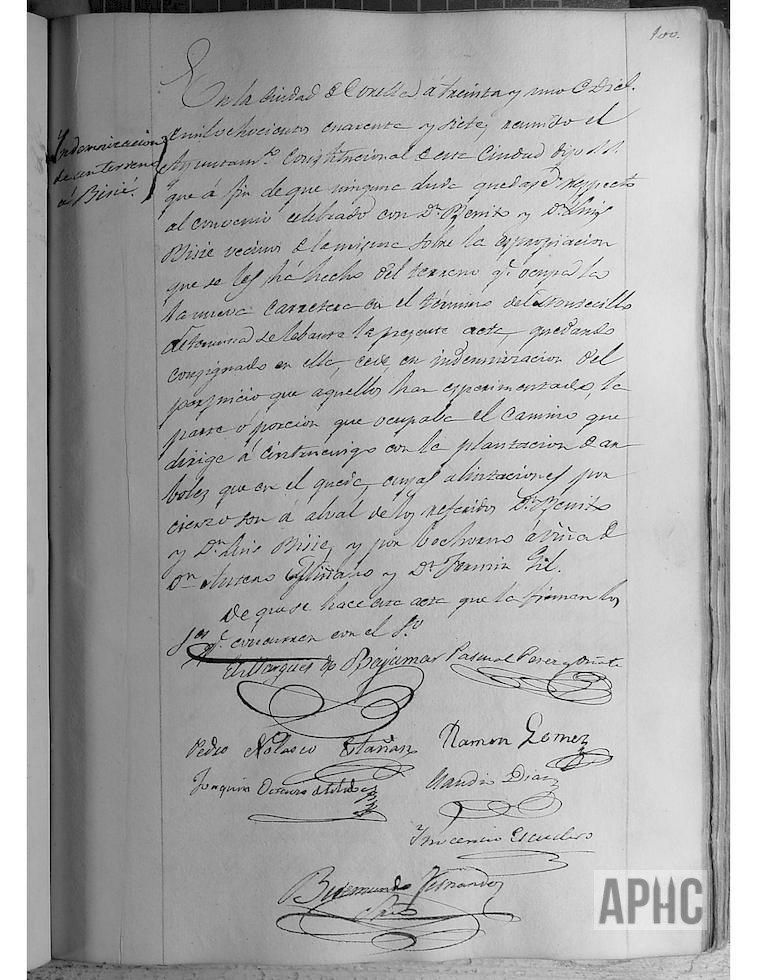 100.
Indemnizacion
de un terreno
á Bisié.
En la Ciudad de Corella á treinta y uno de Dice.
de mil ochocientos cuarenta y siete, reunido el
Ayuntamto. Constitucional de esta Ciudad dijo
que á fin de que ninguna duda quedase respecto
al convenio celebrado con Dn. Benito y Dn. Luis
Bisié vecinos de la misma sobre la espropiacion
que se les há hecho del terreno qe. ocupa la
la nueva carretera en el término del Montecillo
se lebanta la presente acta, quedando
consignado en ella, cede, en indemnizacion del
perjuicio que aquellos han esperimentado, la
parte ó porcion que ocupaba el camino que
dirige á Cintruenigo con la plantacion de ar
boles que en el quede, cuyas alintaciones por
cierzo son á alval de los referidos Dn. Benito
y Dn. Luis Bisié, y por bochorno á viña de
Dn. y Dn. Fermin Gil.
De que se hace esta acta que la firman los
Sres. qe. concurren con el Sro.
El Marques de Bajamar Pascual Perez y Oñate
Pedro Nolasco Ramon Gomez
Joaquin Claudio Diaz
Inocencio Escudero
Bermundo Fernandez
APHC